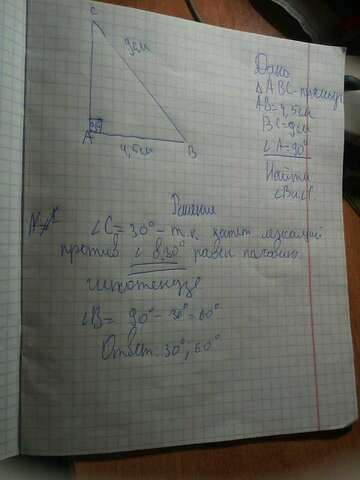 C
9см
A
4,5см
B
Дано
△ABC-прямоуг
AB=4,5см
BC=9см
∠A=90°
Найти
∠B и ∠C.
Решение
∠C=30°-т.к катет лежащий
против ∠ в 30° равен половине
гипотенузе
∠B= 90°-30°=60°
Ответ. 30°, 60°